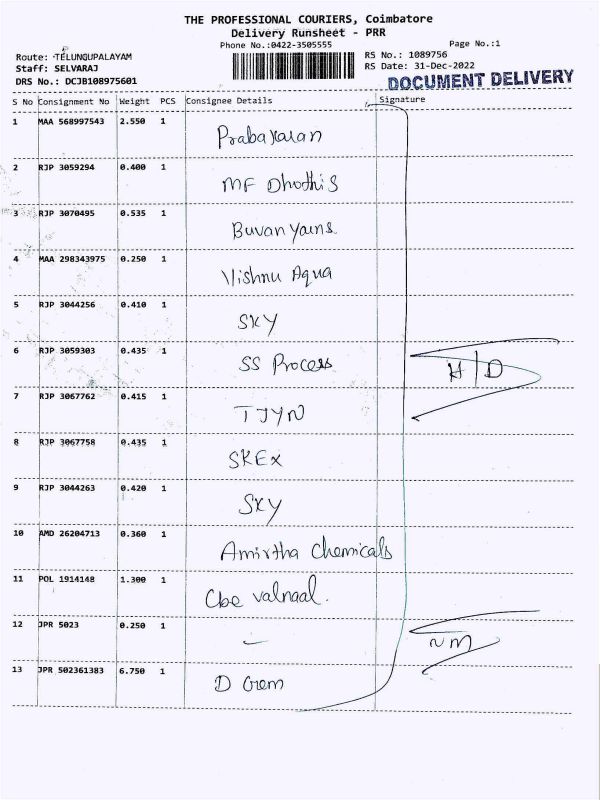 THE PROFESSIONAL COURIERS, Coimbatore
Delivery Runsheet - PRR
Phone No.:0422-3505555
Page No.:1
Route: TELUNGUPALAYAM
RS No.: 1089756
Staff: SELVARAJ
RS Date: 31-Dec-2022
DRS No.: DCJB108975601
DOCUMENT DELIVERY
S No Consignment No Weight PCS Consignee Details Signature
1 MAA 568997543 2.550 1 Prabakaran
2 RJP 3059294 0.400 1 MF Dhothis
3 RJP 3070495 0.535 1 Buvan Yarns.
4 MAA 298343975 0.250 1 Vishnu Aqua
5 RJP 3044256 0.410 1 SKY
6 RJP 3059303 0.435 1 SS Process H/D
7 RJP 3067762 0.415 1 TJYN
8 RJP 3067758 0.435 1 SKEX
9 RJP 3044263 0.420 1 SKY
10 AMD 26204713 0.360 1 Amirtha Chemicals
11 POL 1914148 1.300 1 Cbe
12 JPR 5023 0.250 1 - NM
13 JPR 502361383 6.750 1 D Gem